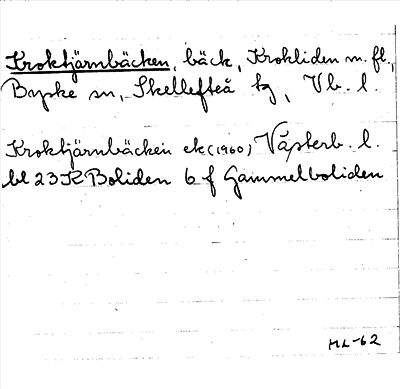 Kroktjärnbäcken, bäck, Krokliden m. fl.,
Byske sn, Skellefteå tg, Vb. l.
Kroktjärnbäcken ek (1960) Västerb. l.
bl 23K Boliden 6 f Gammelboliden
ML-62